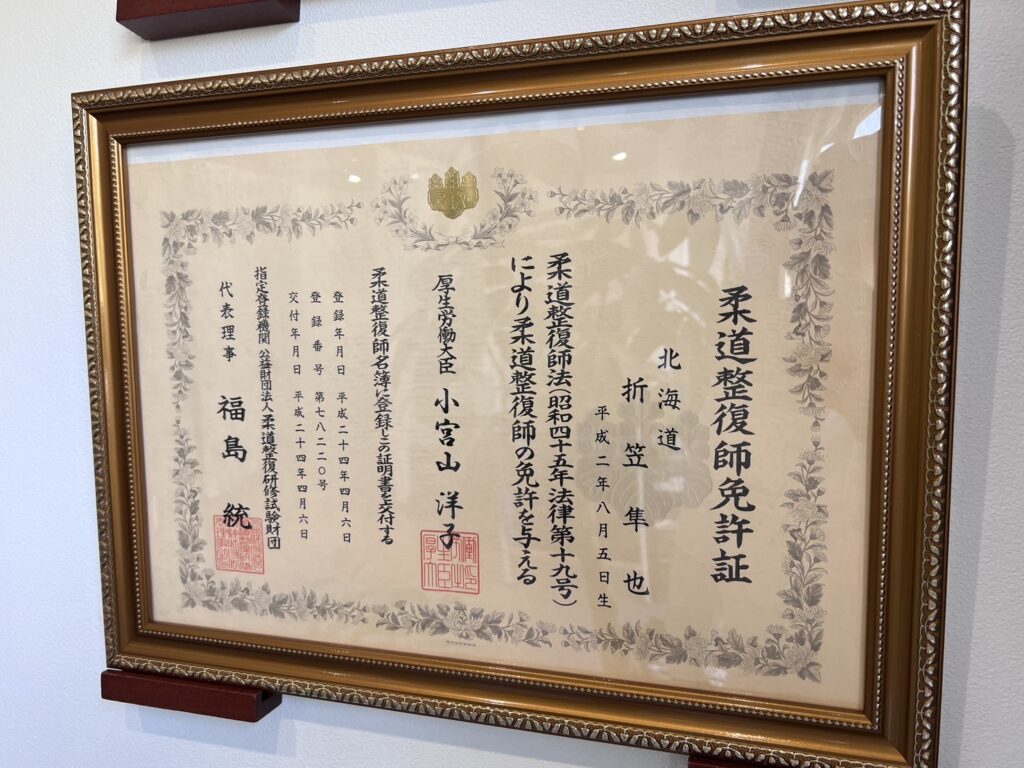 柔道整復師免許証
北海道
折笠隼也
平成二年八月五日生
柔道整復師法(昭和四十五年法律第十九号)
により柔道整復師の免許を与える
厚生労働大臣 小宮山洋子
柔道整復師名簿に登録しこの証明書を交付する
登録年月日 平成二十四年四月六日
登録番号 第七八二二〇号
交付年月日 平成二十四年四月六日
指定登録機関 公益財団法人 柔道整復研修試験財団
代表理事 福島統